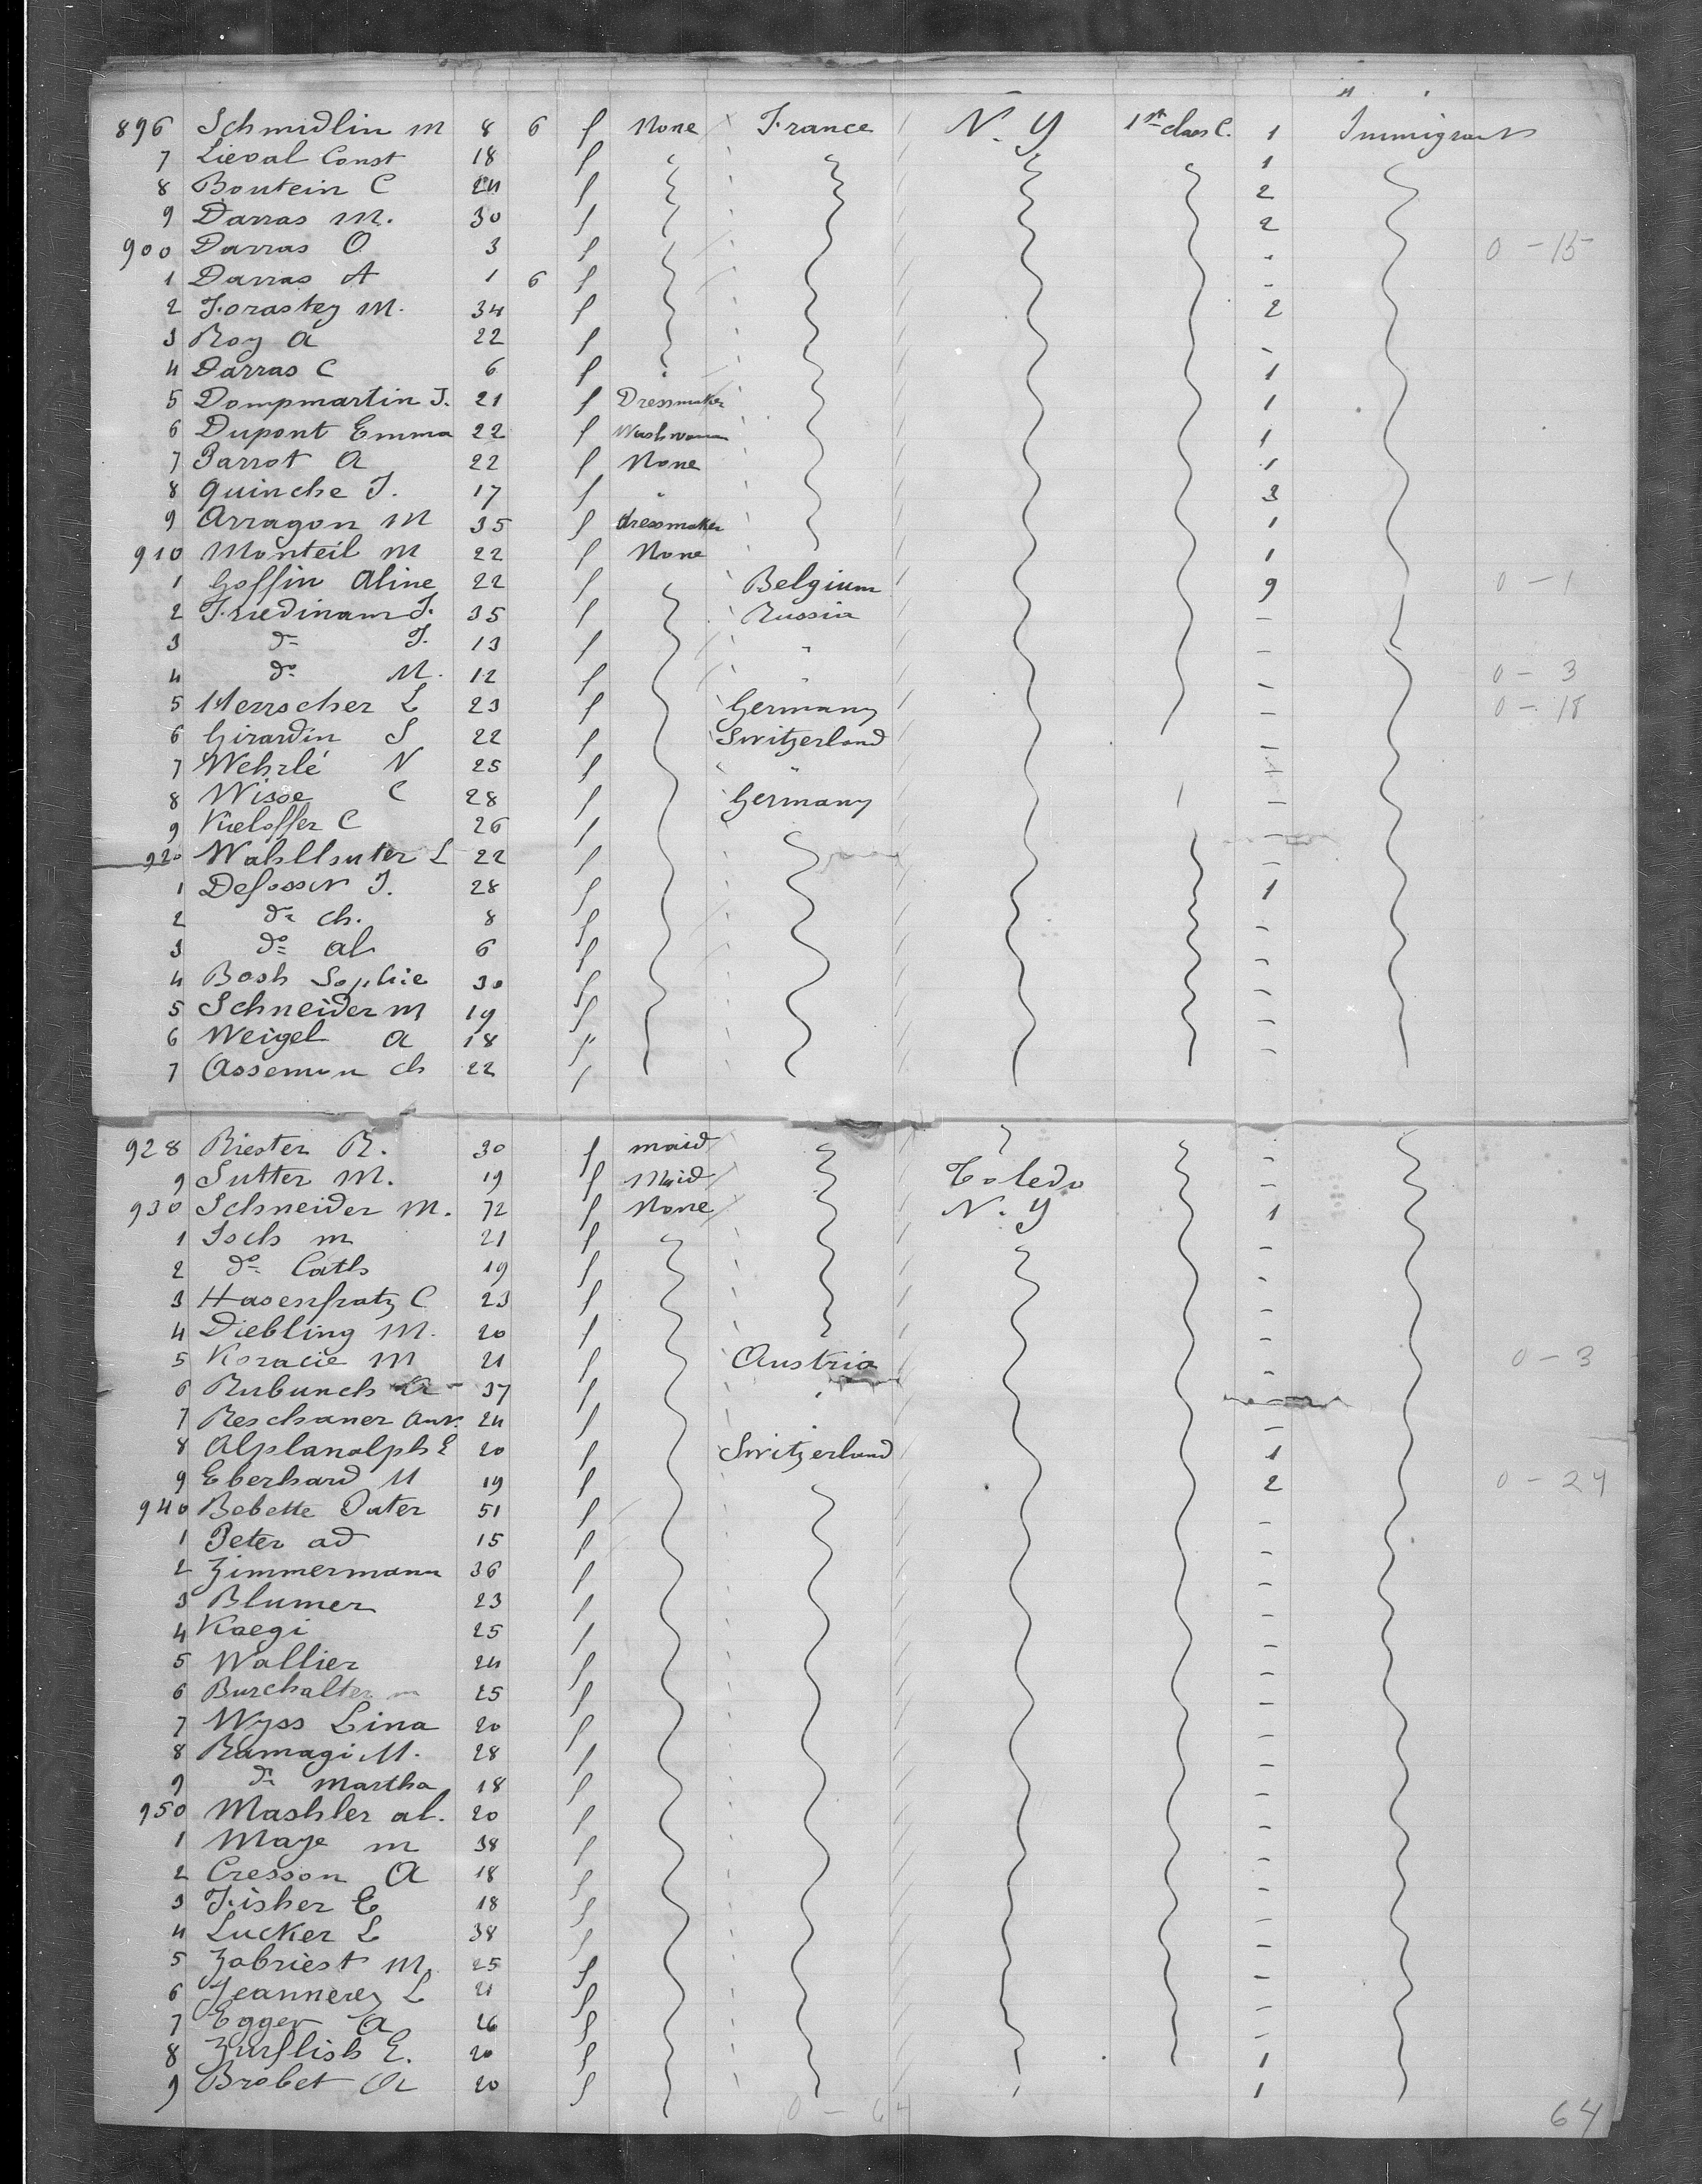 896 Schmidlin M 8 6 f None France N. Y 1st class C. 1 Immigrant
7 Lieval Const 18 f 1
8 Boutein C 24 f 2
9 Darras M. 30 f 2
900 Darras O 3 f - 0 - 15
1 Darras A 1 6 f -
2 Forastey M. 34 f 2
3 Roy A 22 f -
4 Darras C 6 f " 1
5 Dompmartin J. 21 f Dressmaker 1
6 Dupont Emma 22 f Washwoman 1
7 Parrot A 22 f None 1
8 Quinche J. 17 f " 3
9 Arragon M 35 f dressmaker 1
910 Monteil M 22 f None 1
1 Goffin Aline 22 f Belgium 9 0 - 1
2 Friedinam J. 35 f Russia -
3 do J. 13 f " -
4 do M. 12 f " - 0 - 3
5 Herrscher L 23 f Germany - 0 - 18
6 Girardin S 22 f Switzerland -
7 Wehrlé N 25 f " -
8 Wisse C 28 f Germany -
9 C 26 f -
920 L 22 f -
1 J. 28 f 1
2 do ch. 8 f -
3 do al 6 f -
4 Bosh Sophie 30 f -
5 Schneider M 19 f -
6 Weigel A 18 f -
7 Ch 22 f
928 Riester R. 30 f maid -
9 Sutter M. 19 f Maid Toledo -
930 Schneider M. 72 f None N. Y 1
1 Isch M 21 f -
2 do Cath 19 f -
3 Hasenfratz C 23 f -
4 Diebling M. 20 f -
5 Koracie M 21 f Austria - 0 - 3
6 37 f "
7 Reschaner 24 f " -
8 Alplanalph E 20 f Switzerland 1
9 Eberhard M 19 f 2 0 - 24
940 Bebette 51 f -
1 Peter ad 15 f -
2 Zimmermann 36 f -
3 Blumer 23 f -
4 Kaegi 25 f -
5 Wallier 24 f -
6 Burchalter m 25 f -
7 Wyss Lina 20 f -
8 Ramagi M. 28 f -
9 do Martha 18 f -
950 Mashler al. 20 f -
1 Maye M 38 f -
2 Cresson A 18 f -
3 Fisher E 18 f -
4 Lucker L 38 f -
5 Zobriest M. 25 f -
6 Jeannerey L 21 f -
7 Egger A 26 f -
8 Zurflish E. 20 f 1
9 Brobet A 20 f 1
0 - 64 64